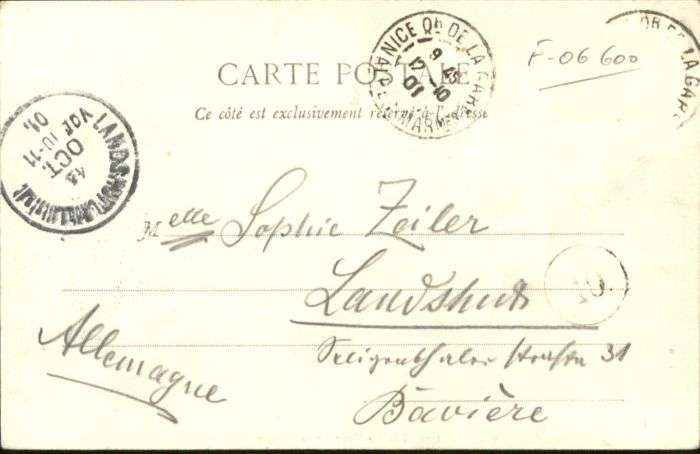 CARTE POSTALE
Ce côté est exclusivement réservé à l'adresse
NICE Qr DE LA GARE
9 45
17 10
01
ALPES MARmes
DE LA GARE
F-06 600
LANDSHUT
OCT.
VOR 10-11
01.
Melle Sophie Zeiler
Landshut
Allemagne
Seligenthaler Strasse 31
Bavière